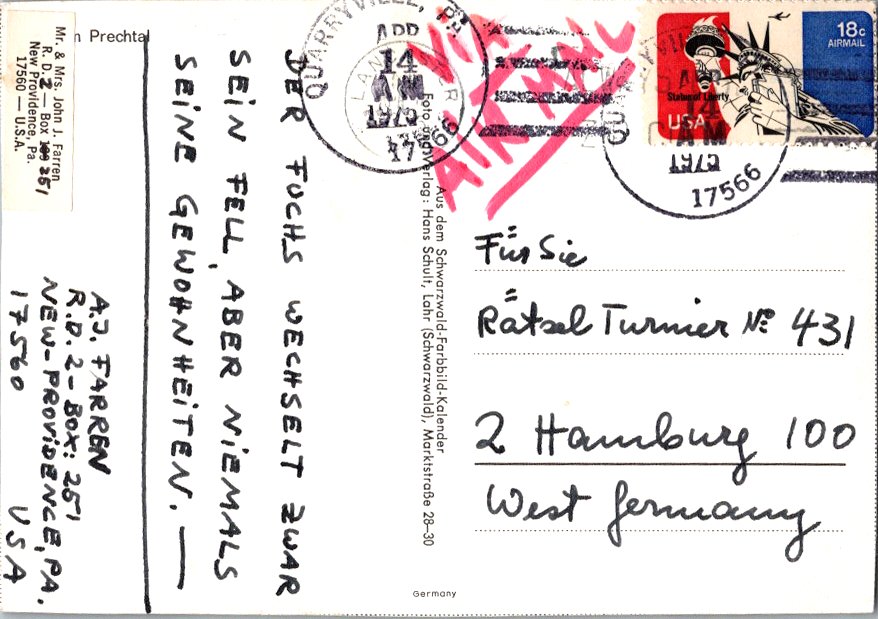 n Prechtal
Mr. & Mrs. John J. Farren
R. D. 2 — Box 251
New Providence, Pa.
17560 — U.S.A.
DER FUCHS WECHSELT ZWAR
SEIN FELL, ABER NIEMALS
SEINE GEWOHNHEITEN. —
A.J. FARREN
R.D. 2 - BOX: 251
NEW-PROVIDENCE, PA.
17560 USA
Aus dem Schwarzwald-Farbbild-Kalender
Foto und Verlag: Hans Schult, Lahr (Schwarzwald), Marktstraße 28–30
Germany
QUARRYVILLE, PA
APR
14
AM
1975
17566
VIA
AIR MAIL
18c
AIRMAIL
Statue of Liberty
USA
AM
1975
17566
Für Sie
Rätsel Turnier № 431
2 Hamburg 100
West Germany